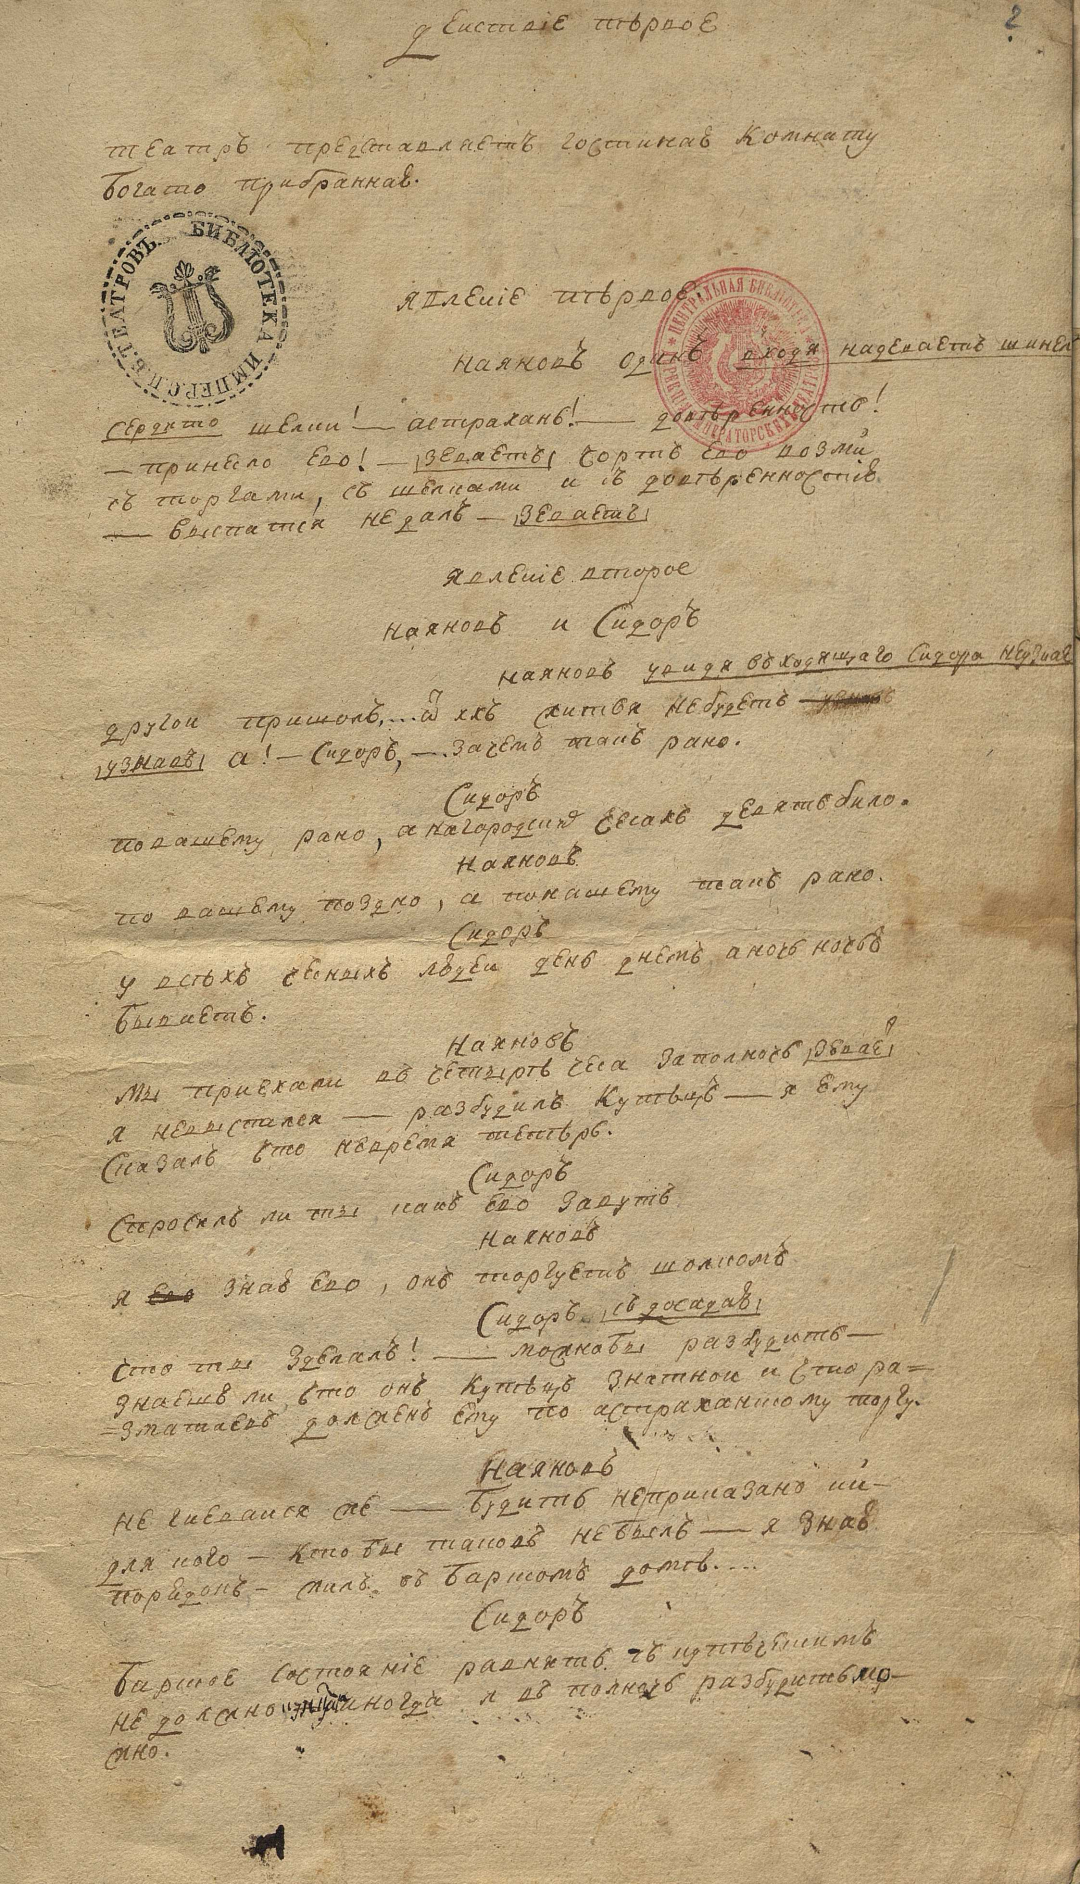 2
дѣиствіе пѣрвое
театръ представляетъ гостинаю комнату
богато прибраннаю.
БИБЛІОТЕКА ИМПЕР. С.П.Б. ТЕАТРОВЪ
ЦЕНТРАЛЬНАЯ БИБЛІОТЕКА
явленіе пѣрвое
наяновъ одинъ входя надеваетъ шинел
сердито шелки! — астрахань! — довѣренность!
— принѣсло ево! — зеваетъ чортъ ево возми
съ торгами, съ шелками и съ довѣренностію
— выспатся не далъ — зеваетъ
явленіе второе
наяновъ и Сидоръ
наяновъ увидя въходящаго Сидора неузнав
другои пришолъ.... ихъ небудетъ
узнавъ а! — Сидоръ, — зачемъ такъ рано.
Сидоръ
повашему рано, а нагородских чесахъ девять било.
Наяновъ
по вашему поздно, а понашему такъ рано.
Сидоръ
у всѣхъ чесныхъ людеи день днемъ аночь ночью
бываетъ.
Наяновъ
мы приехали въ четверть чеса заполночь зевае
я невыспался — разбудилъ купѣцъ — я ему
сказалъ что невремя тепѣрь.
Сидоръ
спросилъ ли ты какъ ево завутъ
Наяновъ
я знаю ево, онъ торгуетъ шолкомъ
Сидоръ съ досадаю
что ты зделалъ! — можнобы разбудить —
знаешь ли, что онъ купѣцъ знатнои и что ра=
=зматаевъ долженъ ему по астраханскому торгу.
Наяновъ
не гневаися же — будить неприказано ни—
для кого — кто бы таковъ небылъ — я знаю
порядокъ — жилъ въ барскомъ домѣ....
Сидоръ
барское состояніе равнять съ купѣческимъ
не должно иногда и въ полночь разбудить мо—
жно.